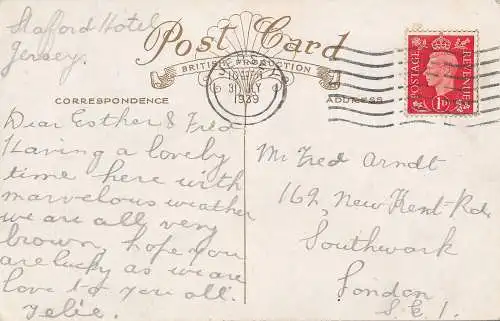 Stafford Hotel
Jersey.
Post Card
BRITISH PRODUCTION
CORRESPONDENCE
ADDRESS
31 JLY
1939
POSTAGE
REVENUE
1D
Dear Esther & Fred
Having a lovely
time here with
marvelous weather
we are all very
brown, hope you
are lucky as we are
love to you all.
Mr Fred Arndt
169, New Kent Rd.
Southwark
London
S.E.1.